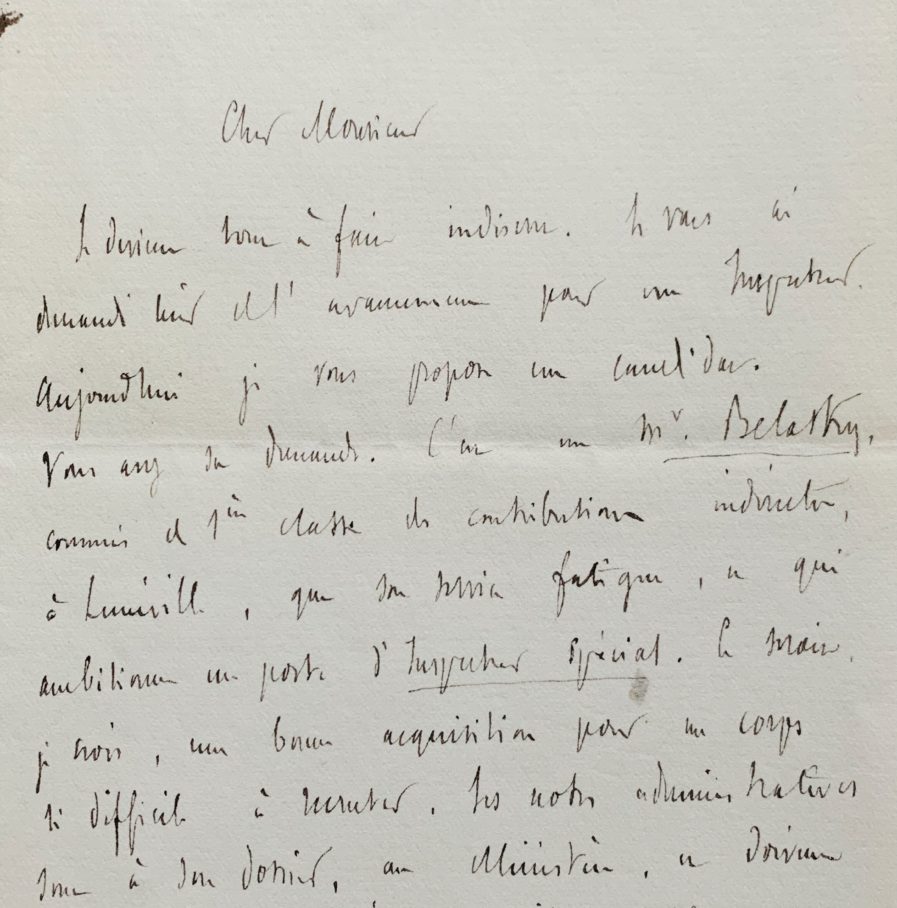 Cher Monsieur
Je deviens tout à fait indiscret. Je vous ai
demandé hier de l'avancement pour un Inspecteur.
Aujourd'hui je vous propose un candidat.
Vous avez sa demande. C'est un Mr. Belatky,
commis de 1ère classe des contributions indirectes,
à Lunéville, que son service fatigue, et qui
ambitionne un poste d'Inspecteur spécial. Ce serait,
je crois, une bonne acquisition pour un corps
si difficile à recruter. Ses notes administratives
sont à son dossier, au Ministère, et doivent